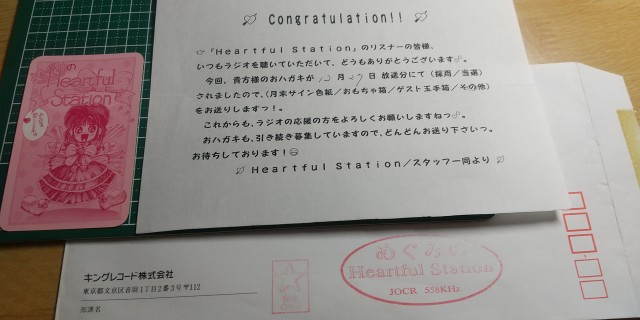 Congratulation!!
☞『Heartful Station』のリスナーの皆様、
いつもラジオを聴いていただいて、どうもありがとうございます。
今回、貴方様のおハガキが12月27日放送分にて(採用/当選)
されましたので、(月末サイン色紙/おもちゃ箱/ゲスト玉手箱/その他)
をお送りしますっ!。
これからも、ラジオの応援の方をよろしくお願いしますねっ。
おハガキも、引き続き募集していますので、どんどんお送り下さいっ。
お待ちしております!
Heartful Station/スタッフ一同より
の
Heartful
Station
キングレコード株式会社
東京都文京区音羽1丁目2番3号〒112
担課名
めぐみの
Heartful Station
JOCR 558KHz